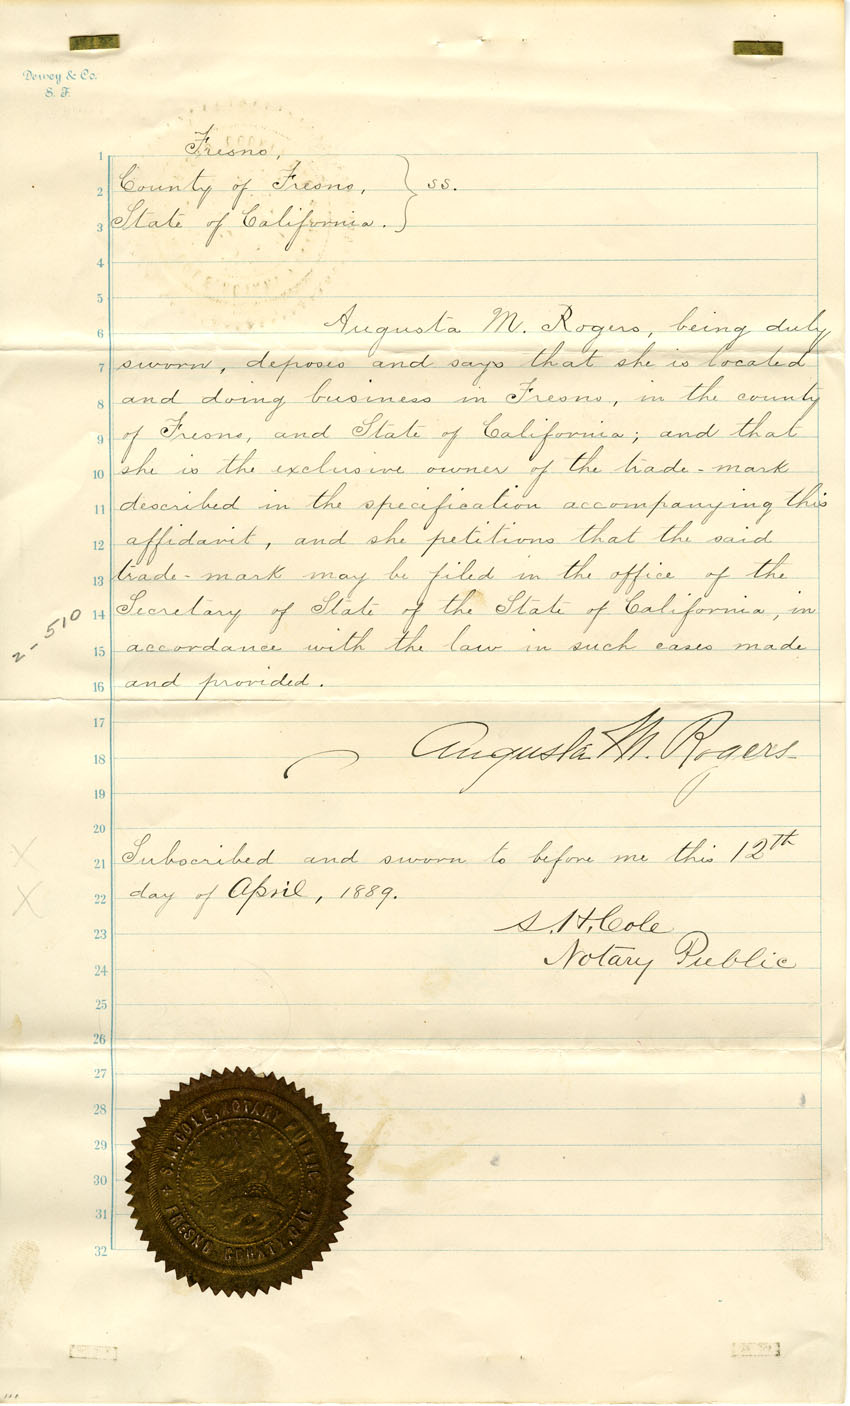 Dewey & Co.
S. F.
1 Fresno,
2 County of Fresno, } ss.
3 State of California.
4
5
6 Augusta M. Rogers, being duly
7 sworn, deposes and says that she is located
8 and doing business in Fresno, in the county
9 of Fresno, and State of California; and that
10 she is the exclusive owner of the trade-mark
11 described in the specification accompanying this
12 affidavit, and she petitions that the said
13 trade-mark may be filed in the office of the
14 Secretary of State of the State of California, in
2-510
15 accordance with the law in such cases made
16 and provided.
17
18 Augusta M. Rogers
19
20
21 Subscribed and sworn to before me this 12th
22 day of April, 1889.
23 S. H. Cole
24 Notary Public
25
26
27
28
29
30
31
32
S. H. COLE, NOTARY PUBLIC
FRESNO COUNTY, CAL.